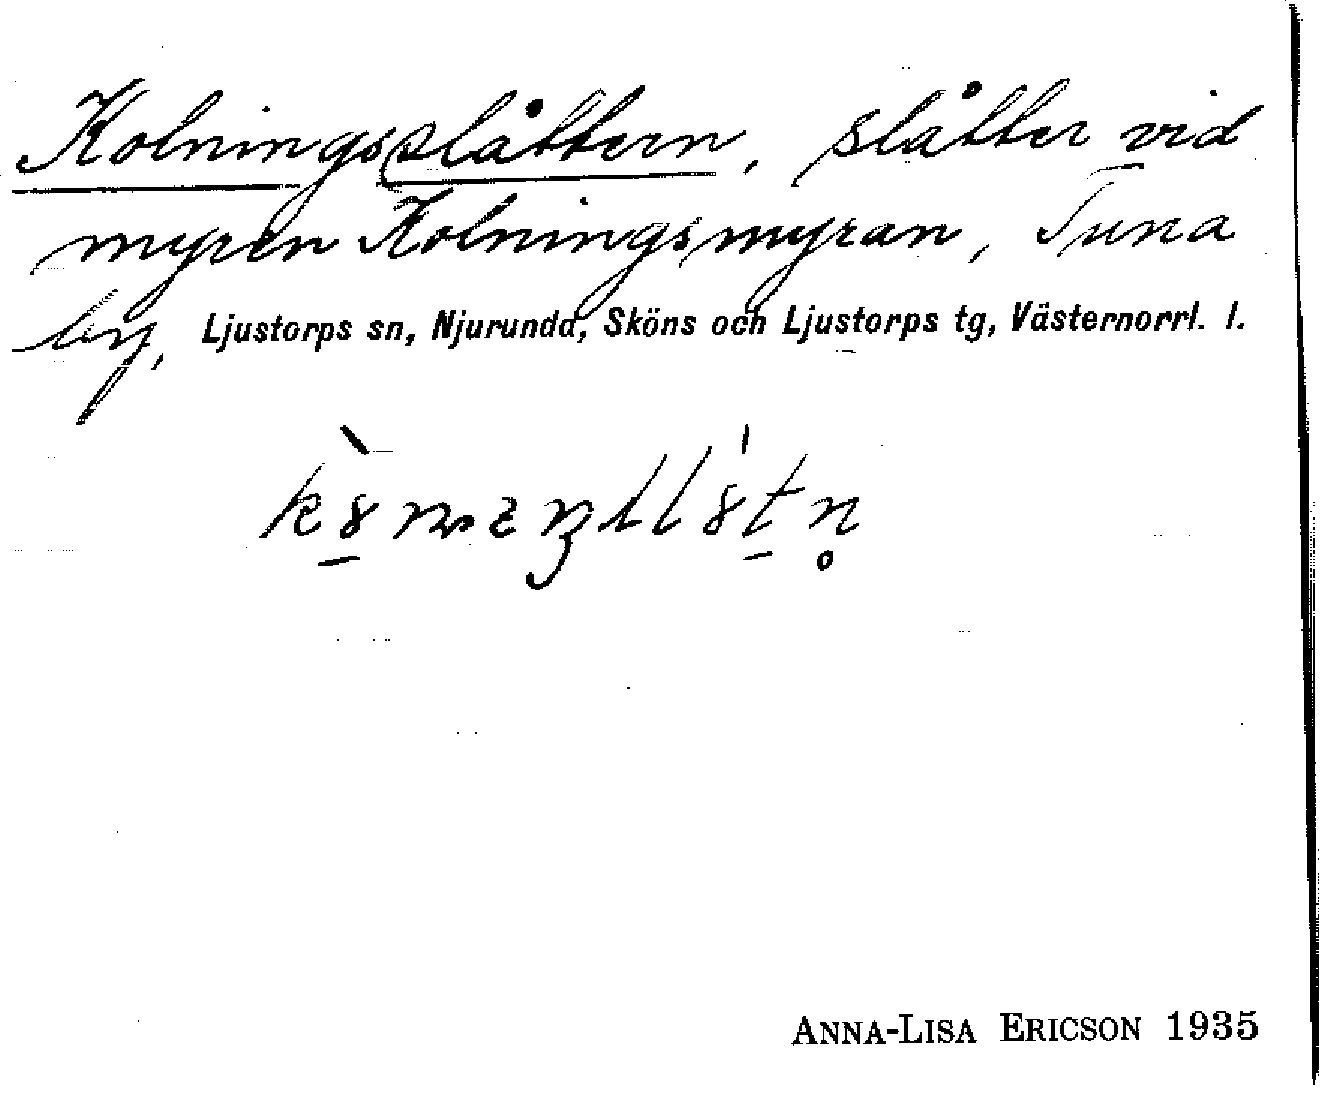 Kolningsslåttern, slåtter vid
myren Kolningsmyran, Tuna
by, Ljustorps sn, Njurunda, Sköns och Ljustorps tg, Västernorrl. l.
ANNA-LISA ERICSON 1935